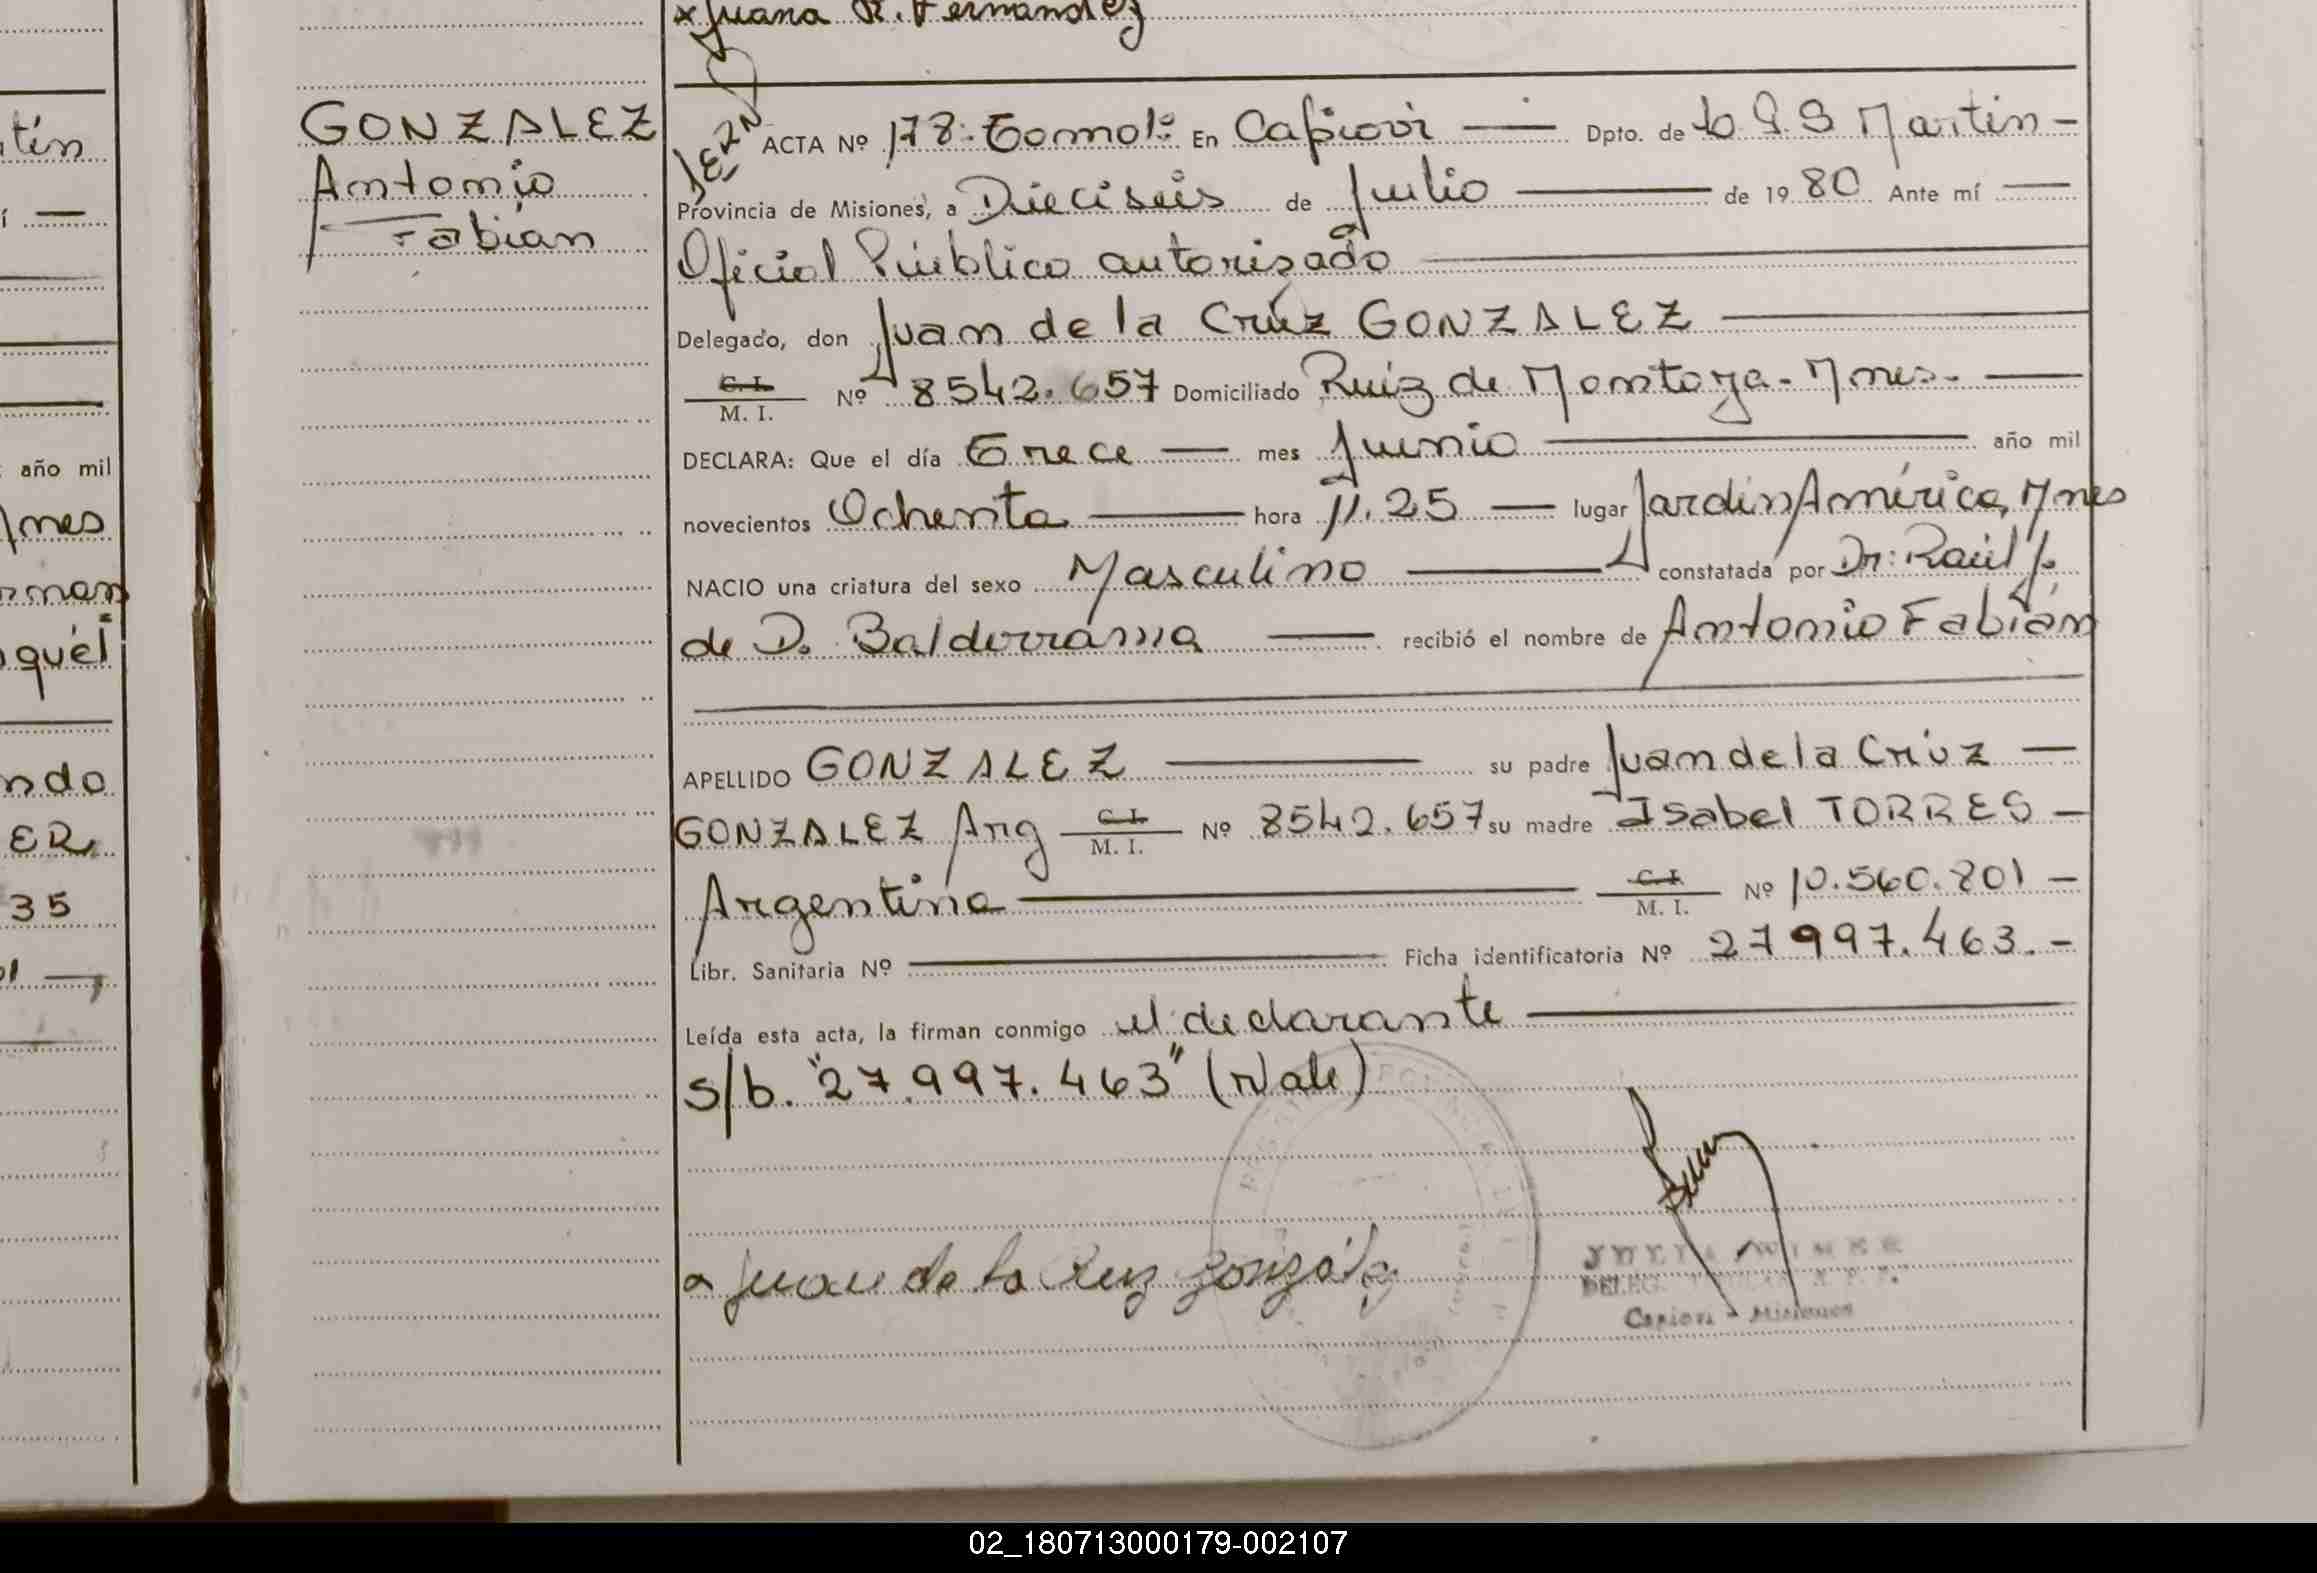 x Juana R. Fernandez
GONZALEZ
Antonio
Fabian
ACTA Nº 178. Tomo 1º En Capiovi — Dpto. de Lb. G. S Martin -
Provincia de Misiones, a Dieciseis de Julio — de 19 80 Ante mí —
Oficial Público autorizado —
Delegado, don Juan de la Crúz GONZALEZ —
C. I.
M. I. Nº 8542.657 Domiciliado Ruiz de Montoya - Mnes. —
DECLARA: Que el día Trece — mes Junio — año mil
novecientos Ochenta — hora 11.25 — lugar Jardin América, Mnes
NACIO una criatura del sexo Masculino — constatada por Dr: Raúl J.
de D. Balderrama — recibió el nombre de Antonio Fabián
APELLIDO GONZALEZ — su padre Juan de la Crúz —
GONZALEZ Arg — C. I.
M. I. Nº 8542.657 su madre Isabel TORRES —
Argentina — C. I.
M. I. Nº 10.560.801 —
Libr. Sanitaria Nº — Ficha identificatoria Nº 27997.463. -
Leída esta acta, la firman conmigo el declarante —
s/b. "27.997.463" (Vale)
Juan de la Cruz González
DELEG.
Capiovi - Misiones
tín
í —
año mil
Mnes
rman
quél
ndo
ER
35
02_180713000179-002107